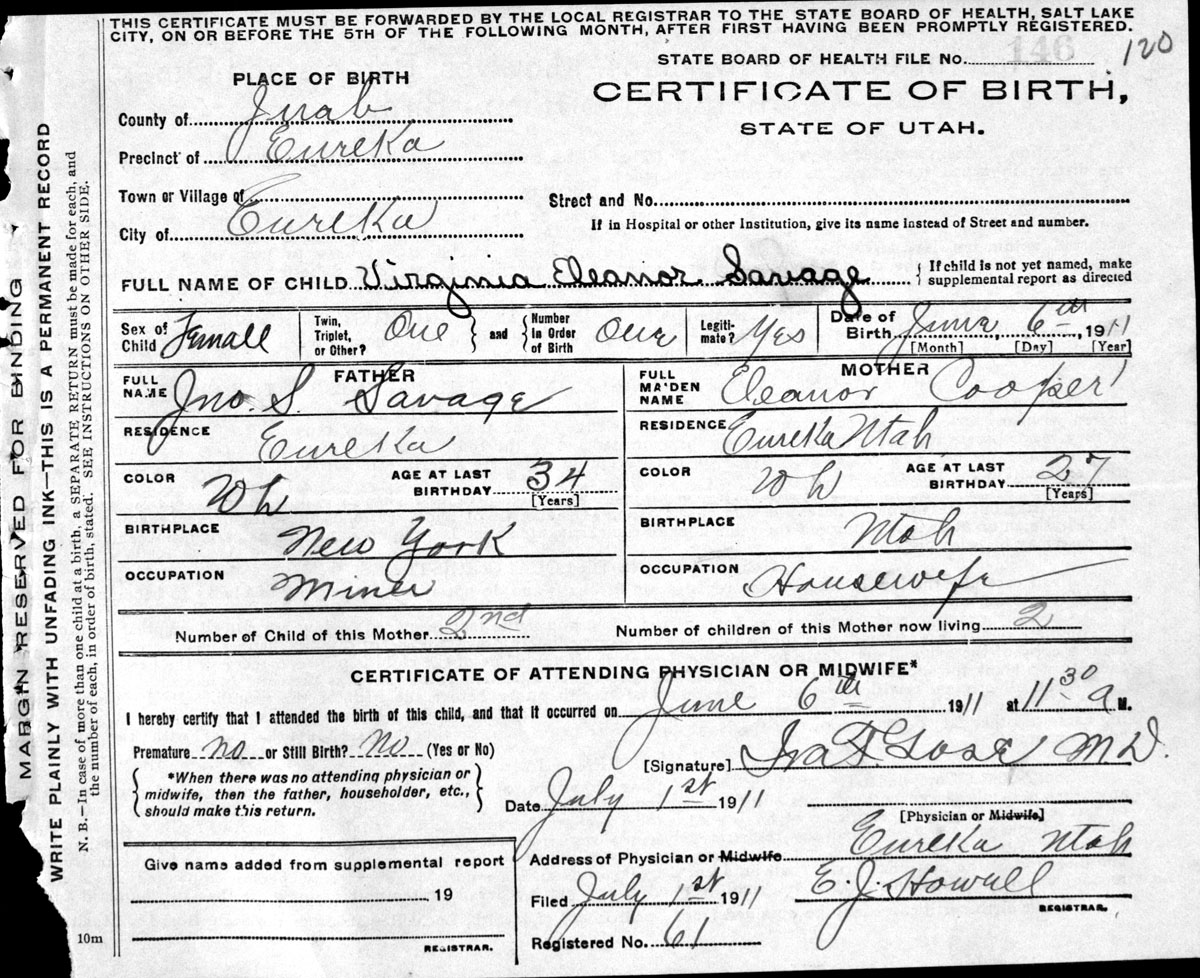 THIS CERTIFICATE MUST BE FORWARDED BY THE LOCAL REGISTRAR TO THE STATE BOARD OF HEALTH, SALT LAKE
CITY, ON OR BEFORE THE 5TH OF THE FOLLOWING MONTH, AFTER FIRST HAVING BEEN PROMPTLY REGISTERED.
STATE BOARD OF HEALTH FILE No. 146 120
PLACE OF BIRTH
CERTIFICATE OF BIRTH,
STATE OF UTAH.
County of Juab
Precinct of Eureka
Town or Village of
Street and No.
City of Eureka
If in Hospital or other Institution, give its name instead of Street and number.
FULL NAME OF CHILD Virginia Eleanor Savage
If child is not yet named, make
supplemental report as directed
Sex of Child Female
Twin, Triplet, or Other? One
and
Number in Order of Birth One
Legitimate? Yes
Date of Birth June 6th, 1911
[Month] [Day] [Year]
FATHER
FULL NAME Jno. S. Savage
RESIDENCE Eureka
COLOR Wh
AGE AT LAST BIRTHDAY 34
[Years]
BIRTHPLACE New York
OCCUPATION Miner
MOTHER
FULL MAIDEN NAME Eleanor Cooper
RESIDENCE Eureka Utah
COLOR Wh
AGE AT LAST BIRTHDAY 27
[Years]
BIRTHPLACE Utah
OCCUPATION Housewife
Number of Child of this Mother 2nd
Number of children of this Mother now living 2
CERTIFICATE OF ATTENDING PHYSICIAN OR MIDWIFE*
I hereby certify that I attended the birth of this child, and that it occurred on June 6th 1911 at 11 30 a M.
Premature no or Still Birth? No (Yes or No)
*When there was no attending physician or
midwife, then the father, householder, etc.,
should make this return.
[Signature] M D.
Date July 1st 1911
[Physician or Midwife]
Address of Physician or Midwife Eureka Utah
Give name added from supplemental report
19
REGISTRAR.
Filed July 1st 1911 E. J. Howell
REGISTRAR.
Registered No. 61
10m
MARGIN RESERVED FOR BINDING
WRITE PLAINLY WITH UNFADING INK—THIS IS A PERMANENT RECORD
N. B.—In case of more than one child at a birth, a SEPARATE RETURN must be made for each, and
the number of each, in order of birth, stated. SEE INSTRUCTIONS ON OTHER SIDE.